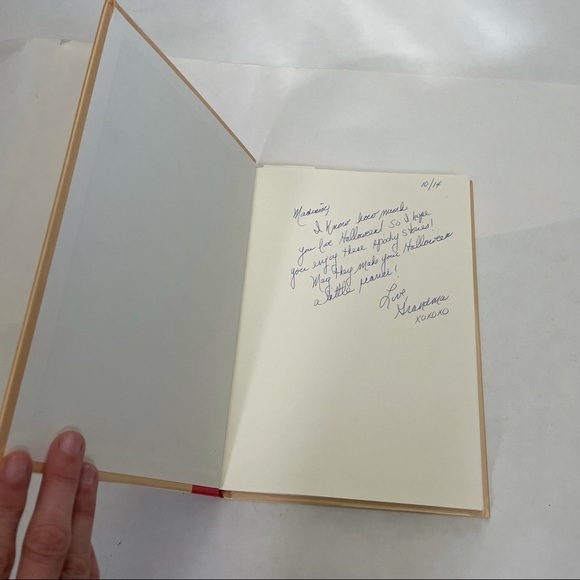 10/14
I know how much
you love Halloween! So I hope
you enjoy these spooky stories!
May they make your Halloween
a little scarier!
Love
Grandma
XOXOXO